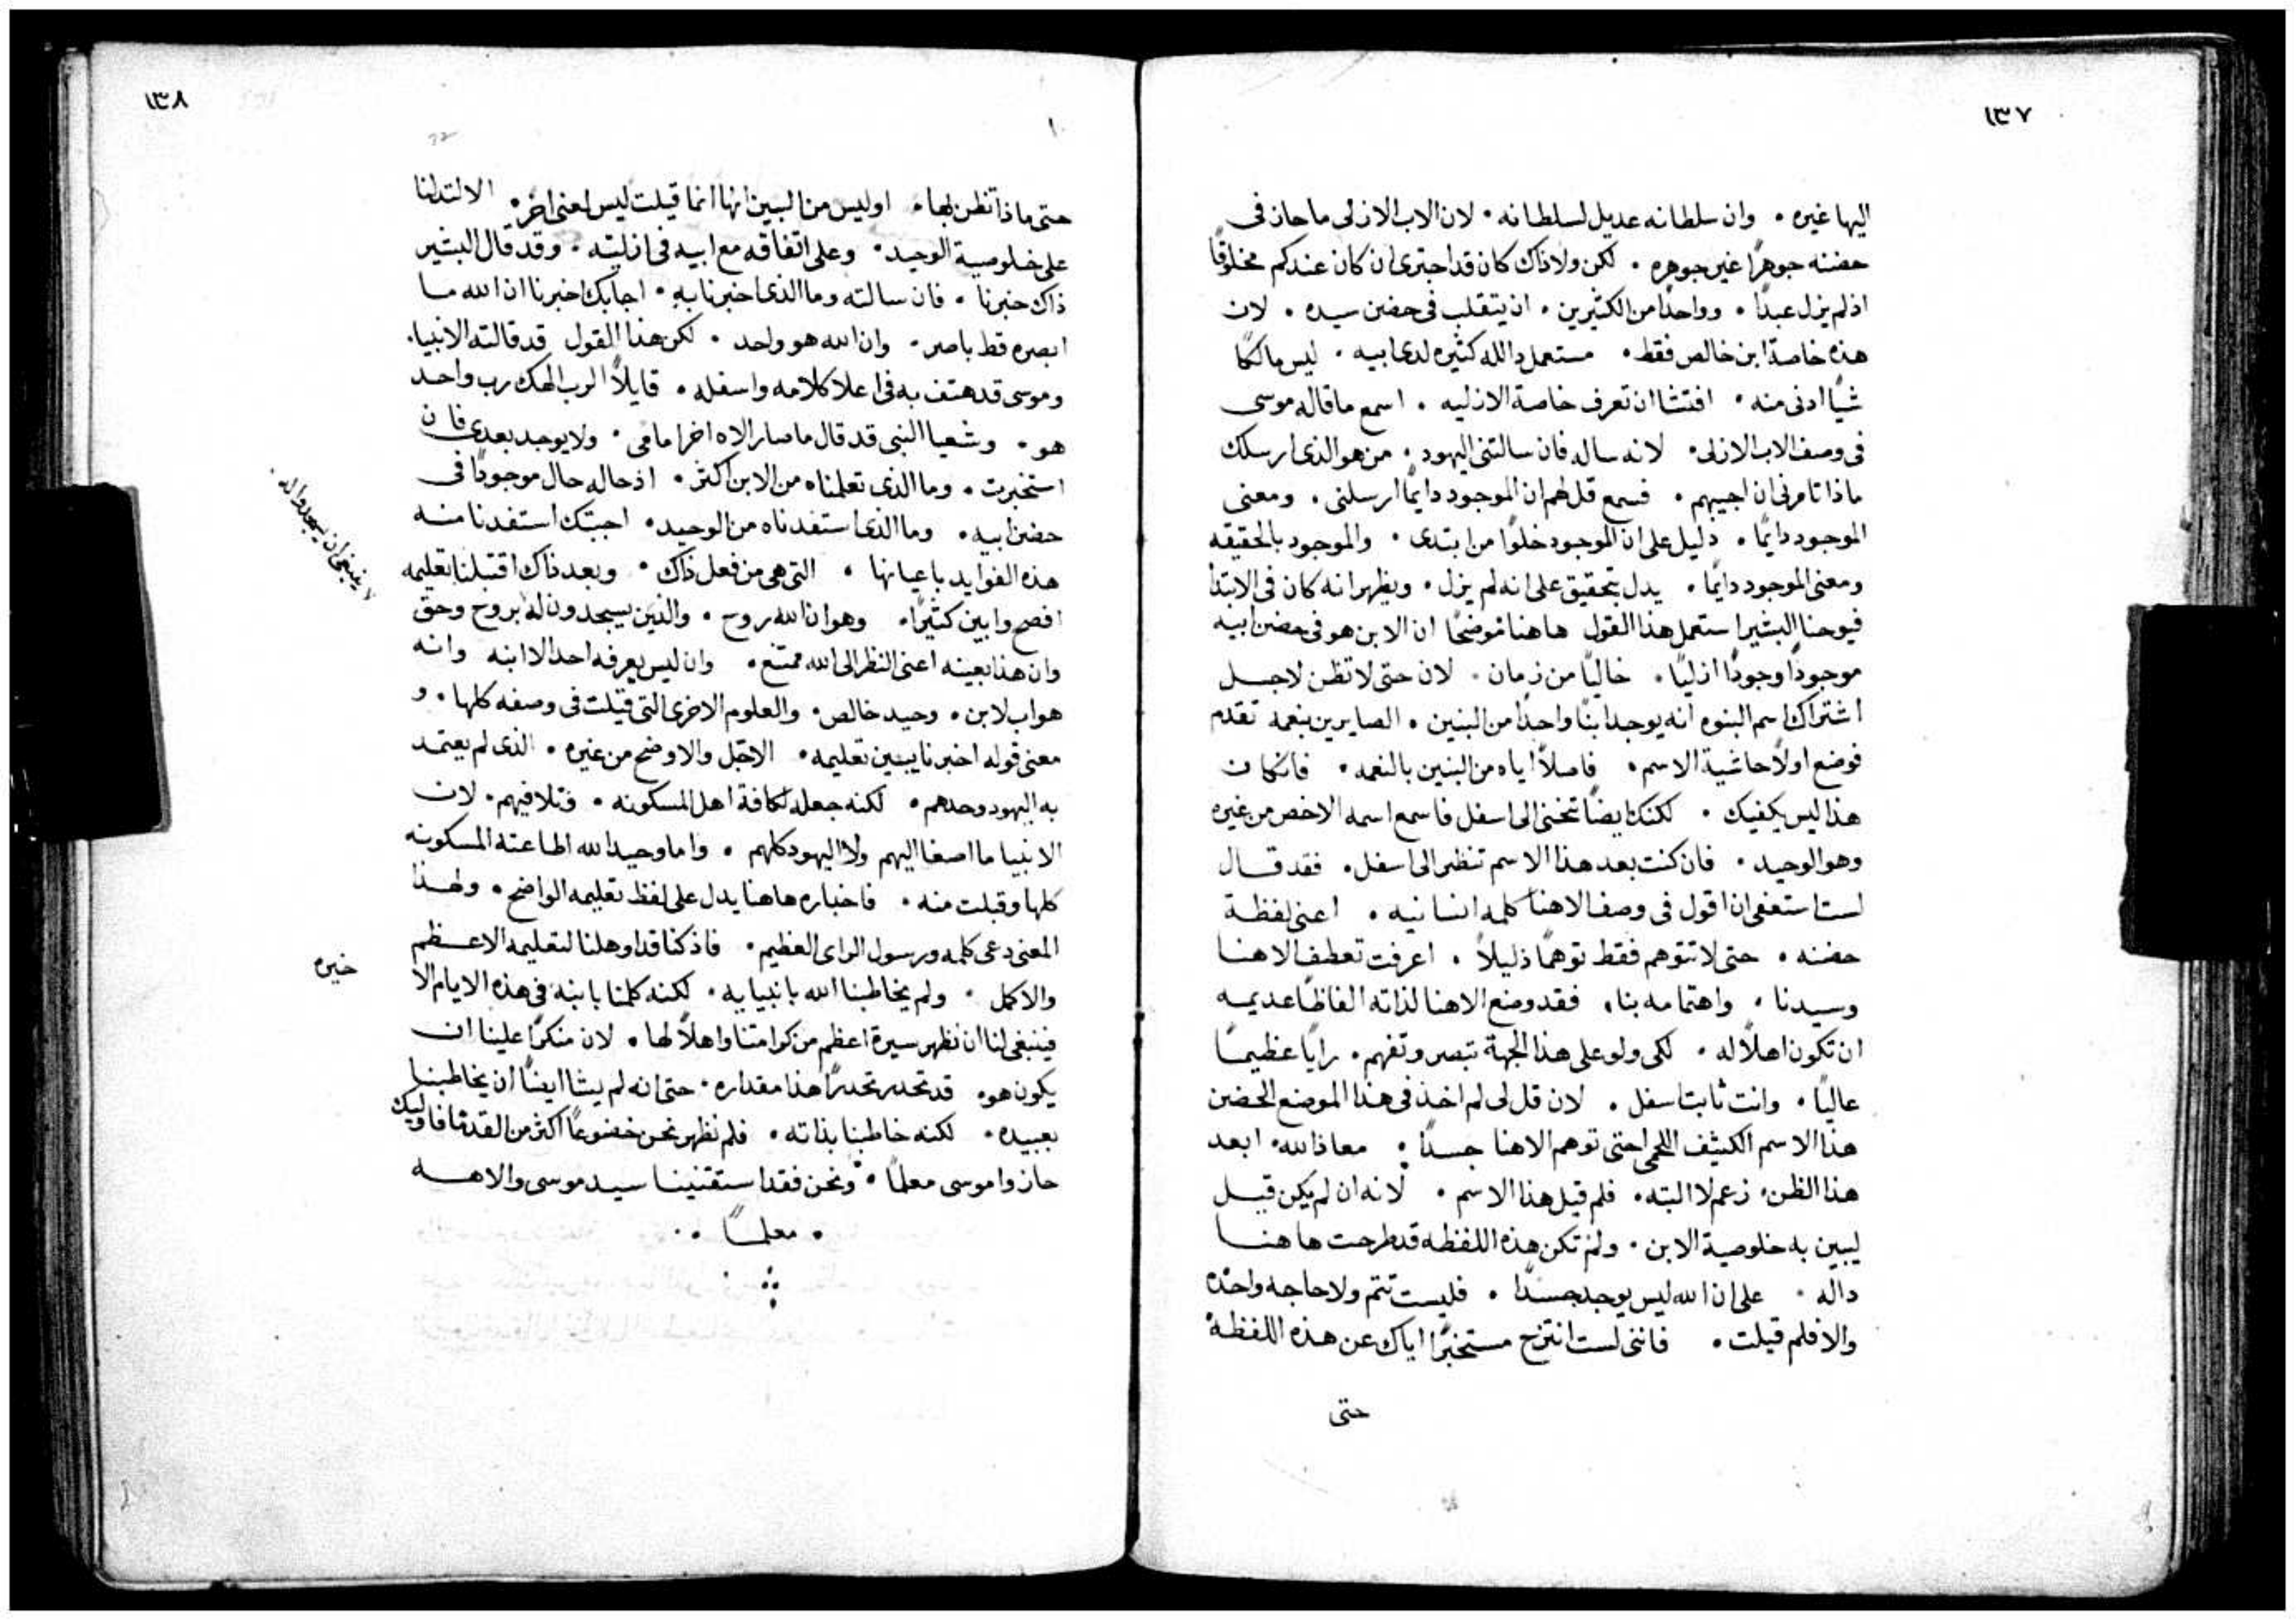 ١٣٧
اليها غيره . وان سلطانه عديل لسلطانه . لان الاب الازلى ما حاز فى
حضنه جوهرًا غير جوهره . لكن ولا ذاك كان قد اجترى ان كان عندكم مخلوقًا
اذ لم يزل عبدًا . وواحدًا من الكثيرين . ان يتقلب فى حضن سيده . لان
هذه خاصة ابن خالص فقط . مستعمل دالله كثيره لدى ابيه . ليس مالكًا
شيًا ادنى منه . افتشا ان تعرف خاصة الازليه . اسمع ما قاله موسى
فى وصف الاب الازلى . لانه ساله فان سالتنى اليهود . من هو الذى ارسلك
ماذا تامرنى ان اجيبهم . فسمع قل لهم ان الموجود دايمًا ارسلنى . ومعنى
الموجود دايمًا . دليل على ان الموجود خلوًا من ابتدى . والموجود بالحقيقه
ومعنى الموجود دايمًا . يدل بتحقيق على انه لم يزل . ويظهر انه كان فى الابتدا
فيوحنا البشير استعمل هذا القول هاهنا موضحًا ان الابن هو فى حضن ابيه
موجودًا وجودًا ازليًا . خاليًا من زمان . لان حتى لا تظن لاجل
اشتراك اسم البنوه انه يوجد ابنًا واحدًا من البنين . الصايرين بنعمه تقدم
فوضع اولًا حاشية الاسم . فاصلًا اياه من البنين بالنعمه . فان كان
هذا ليس يكفيك . لكنك ايضًا تنحنى الى اسفل فاسمع اسمه الاخص من غيره
وهو الوحيد . فان كنت بعد هذا الاسم تنظر الى اسفل . فقد قال
لست استعفى ان اقول فى وصف الاهنا كلمه انسانيه . اعنى لفظة
حضنه . حتى لا تتوهم فقط توهمًا ذليلًا . اعرفت تعطف الاهنا
وسيدنا . واهتمامه بنا . فقد وضع الاهنا لذاته الفاظًا عديمه
ان تكون اهلًا له . لكى ولو على هذا الجهة تبصر وتفهم . رايًا عظيمًا
عاليًا . وانت ثابت اسفل . لان قل لى لم اخذ فى هذا الموضع الحضن
هذا الاسم الكثيف اللحمى احتى توهم الاهنا جسدًا . معاذ الله . ابعد
هذا الظن . زعم لا البته . فلم قيل هذا الاسم . لانه ان لم يكن قيل
ليبين به خلوصية الابن . ولم تكن هذه اللفظه قد طرحت هاهنا
داله . على ان الله ليس يوجد جسدًا . فليست تتم ولا حاجه واحده
والا فلم قيلت . فاننى لست انتزح مستخبرًا اياك عن هذه اللفظة
حتى
١٣٨
حتى ماذا تظن بها . اوليس من البين انها انما قيلت ليس لمعنى اخر . الا لتدلنا
على خلوصية الوحيد . وعلى اتفاقه مع ابيه فى ازليته . وقد قال البشير
ذاك خبرنا . فان سالته وما الذى اخبرنا به . اجابك اخبرنا ان الله ما
ابصره قط باصر . وان الله هو واحد . لكن هذا القول قد قالته الانبيا .
وموسى قد هتف به فى اعلا كلامه واسفله . قايلًا الرب الهك رب واحد
هو . وشعيا النبى قد قال ما صار الاه اخر امامى . ولا يوجد بعدى فان
استخبرت . وما الذى تعلمناه من الابن اكثر . اذ حاله حال موجودًا فى
حضن ابيه . وما الذى استفدناه من الوحيد . اجبتك استفدنا منه
هذه الفوايد باعيانها . التى هى من فعل ذاك . وبعد ذاك اقتبلنا تعليمه
افصح وابين كثيرًا . وهو ان الله روح . والذين يسجدون له بروح وحق
ينبغى ان يسجدوا له .
وان هذا بعينه اعنى النظر الى الله ممتنع . وان ليس يعرفه احد الا ابنه وانه
هو اب لابن . وحيد خالص . والعلوم الاخرى التى قيلت فى وصفه كلها . و
معنى قوله اخبرنا يبين تعليمه . الاجل والاوضح من غيره . الذى لم يعتمد
به اليهود وحدهم . لكنه جعله لكافة اهل المسكونه . وتلافيهم . لان
الانبيا ما اصغا اليهم ولا اليهود كلهم . واما وحيد الله اطاعته المسكونه
كلها وقبلت منه . فاخباره هاهنا يدل على لفظ تعليمه الواضح . ولهذا
المعنى دعى كلمه ورسول الراى العظيم . فاذ كنا قد اوهلنا لتعليمه الاعظم
والاكمل . ولم يخاطبنا الله بانبيايه . لكنه كلمنا بابنه فى هذه الايام الا
خيره
فينبغى لنا ان نظهر سيرة اعظم من كرامتنا واهلًا لها . لان منكرًا علينا ان
يكون هو . قد تحدر تحدرًا هذا مقداره . حتى انه لم يشا ايضًا ان يخاطبنا
بعبيده . لكنه خاطبنا بذاته . فلم نظهر نحن خضوعًا اكثر من القدما فاوليك
حازوا موسى معلمًا . ونحن فقد استقنينا سيد موسى والاهه
. معلمًا .